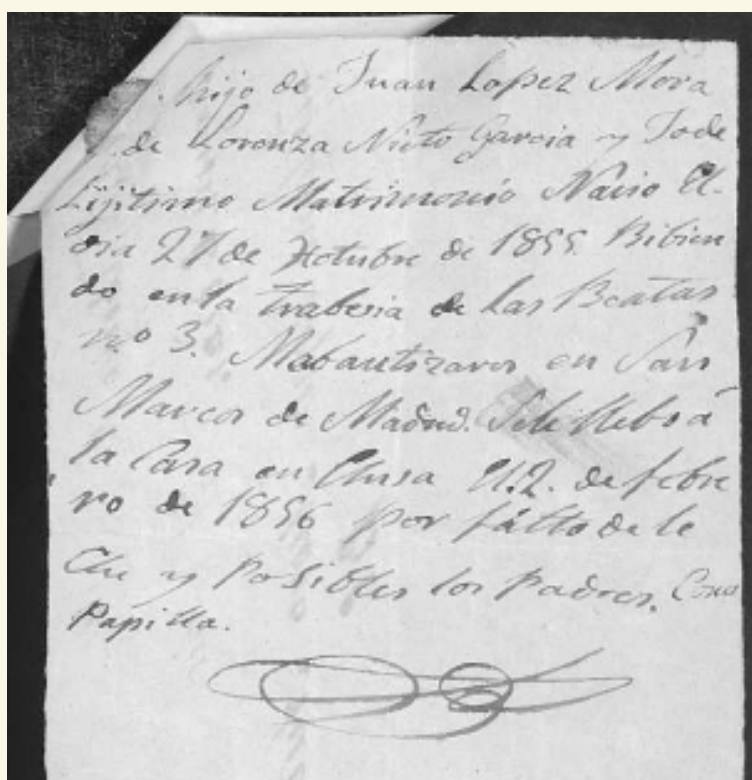 hijo de Juan Lopez Mora
de Lorenza Nieto Garcia y To de
Lijitimo Matrimonio Nacio El
dia 27 de Hotubre de 1855. Bibien
do en la trabesia de las Beatas
no 3. Mabautizaron en San
Marcos de Madrid. Se le llebo a
la Casa en Clusa El 2. de febre
ro de 1856 por falto de le
che y Posibles los padres. Come
Papilla.